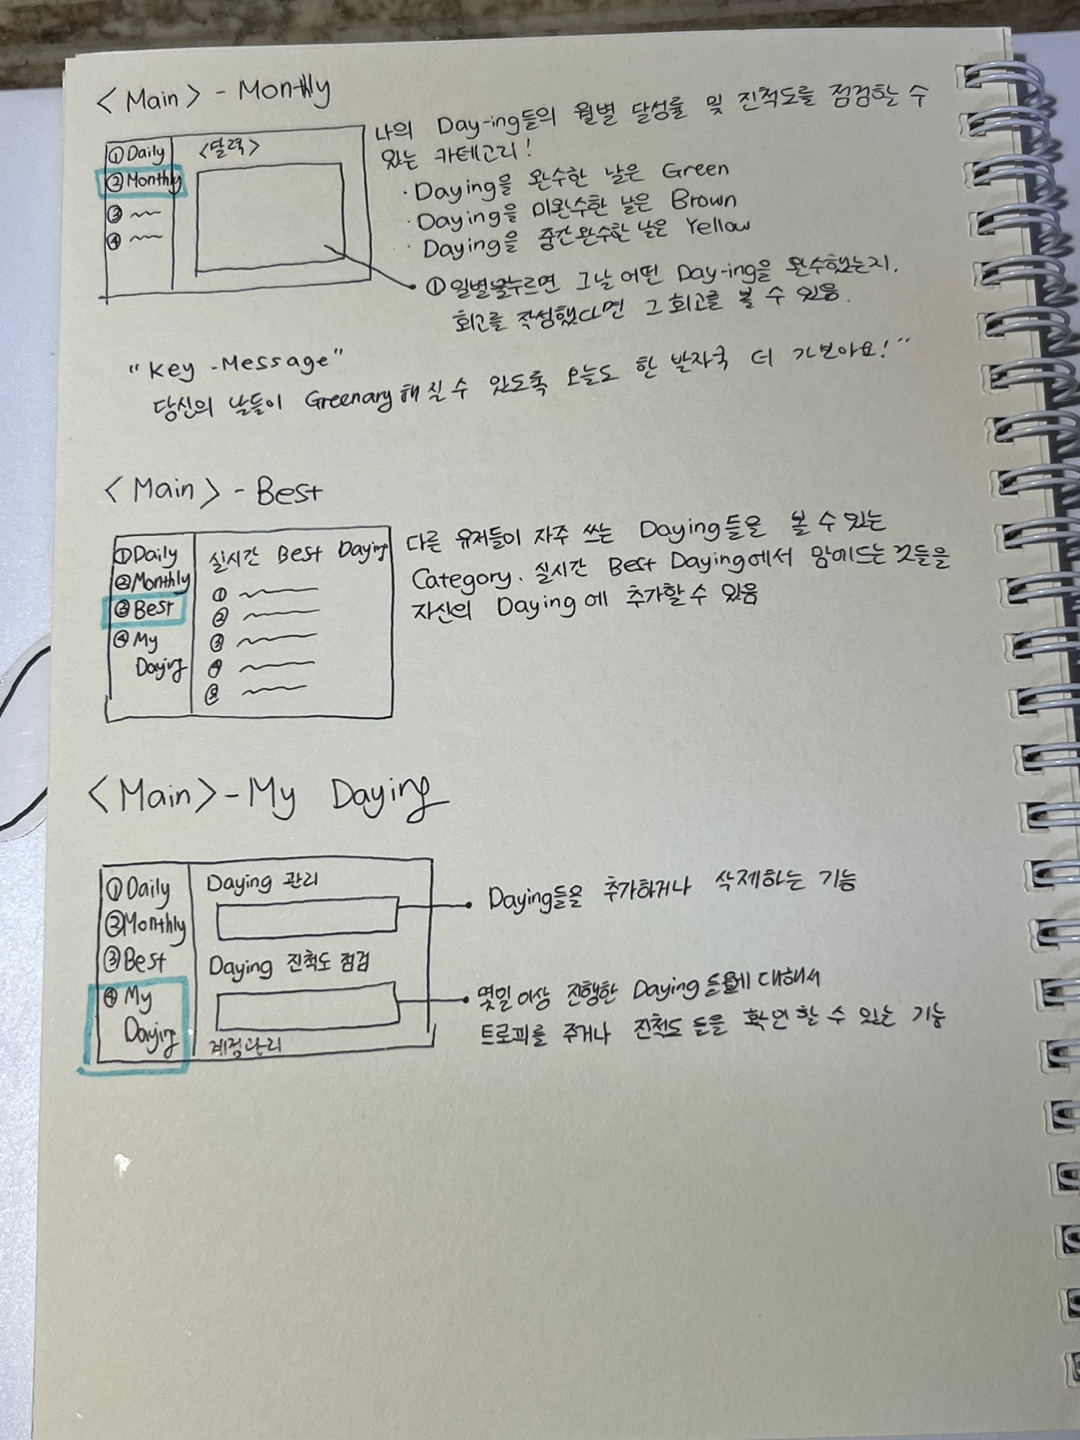 <Main> - Monthly
① Daily
② Monthly
③
④
<달력>
나의 Day-ing들의 월별 달성률 및 진척도를 점검할 수
있는 카테고리!
· Daying을 완수한 날은 Green
· Daying을 미완수한 날은 Brown
· Daying을 중간완수한 날은 Yellow
① 일별로누르면 그날 어떤 Day-ing을 완수했는지,
회고를 작성했다면 그 회고를 볼 수 있음.
"Key -Message"
당신의 날들이 Greenary해질 수 있도록 오늘도 한 발자국 더 가보아요!"
<Main> - Best
① Daily
② Monthly
③ Best
④ My
Daying
실시간 Best Daying
①
②
③
④
⑤
다른 유저들이 자주 쓰는 Daying들을 볼 수 있는
Category. 실시간 Best Daying에서 맘에드는 것들을
자신의 Daying에 추가할 수 있음
<Main> - My Daying
① Daily
② Monthly
③ Best
④ My
Daying
Daying 관리
Daying 진척도 점검
계정관리
Daying들을 추가하거나 삭제하는 기능
몇일 이상 진행한 Daying들에 대해서
트로피를 주거나 진척도 들을 확인 할 수 있는 기능